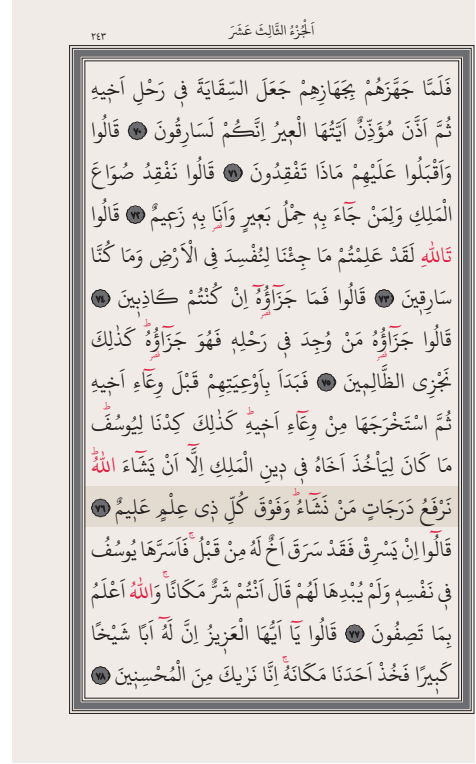 اَلْجُزْءُ الثَّالِثَ عَشَرَ
٢٤٣
فَلَمَّا جَهَّزَهُمْ بِجَهَازِهِمْ جَعَلَ السِّقَايَةَ ف۪ى رَحْلِ اَخ۪يهِ
ثُمَّ اَذَّنَ مُؤَذِّنٌ اَيَّتُهَا الْع۪يرُ اِنَّكُمْ لَسَارِقُونَ ﴿٧٠﴾ قَالُوا
وَاَقْبَلُوا عَلَيْهِمْ مَاذَا تَفْقِدُونَ ﴿٧١﴾ قَالُوا نَفْقِدُ صُوَاعَ
الْمَلِكِ وَلِمَنْ جَٓاءَ بِه۪ حِمْلُ بَع۪يرٍ وَاَنَا۬ بِه۪ زَع۪يمٌ ﴿٧٢﴾ قَالُوا
تَاللّٰهِ لَقَدْ عَلِمْتُمْ مَا جِئْنَا لِنُفْسِدَ فِى الْاَرْضِ وَمَا كُنَّا
سَارِق۪ينَ ﴿٧٣﴾ قَالُوا فَمَا جَزَٓاؤُ۬هُٓ اِنْ كُنْتُمْ كَاذِب۪ينَ ﴿٧٤﴾
قَالُوا جَزَٓاؤُ۬هُ مَنْ وُجِدَ ف۪ى رَحْلِه۪ فَهُوَ جَزَٓاؤُ۬هُۜ كَذٰلِكَ
نَجْزِى الظَّالِم۪ينَ ﴿٧٥﴾ فَبَدَاَ بِاَوْعِيَتِهِمْ قَبْلَ وِعَٓاءِ اَخ۪يهِ
ثُمَّ اسْتَخْرَجَهَا مِنْ وِعَٓاءِ اَخ۪يهِۜ كَذٰلِكَ كِدْنَا لِيُوسُفَۜ
مَا كَانَ لِيَأْخُذَ اَخَاهُ ف۪ى د۪ينِ الْمَلِكِ اِلَّٓا اَنْ يَشَٓاءَ اللّٰهُۜ
نَرْفَعُ دَرَجَاتٍ مَنْ نَشَٓاءُۜ وَفَوْقَ كُلِّ ذ۪ى عِلْمٍ عَل۪يمٌ ﴿٧٦﴾
قَالُٓوا اِنْ يَسْرِقْ فَقَدْ سَرَقَ اَخٌ لَهُ مِنْ قَبْلُۚ فَاَسَرَّهَا يُوسُفُ
ف۪ى نَفْسِه۪ وَلَمْ يُبْدِهَا لَهُمْ قَالَ اَنْتُمْ شَرٌّ مَكَانًاۚ وَاللّٰهُ اَعْلَمُ
بِمَا تَصِفُونَ ﴿٧٧﴾ قَالُوا يَٓا اَيُّهَا الْعَز۪يزُ اِنَّ لَهُٓ اَبًا شَيْخًا
كَب۪يرًا فَخُذْ اَحَدَنَا مَكَانَهُۚ اِنَّا نَرٰيكَ مِنَ الْمُحْسِن۪ينَ ﴿٧٨﴾